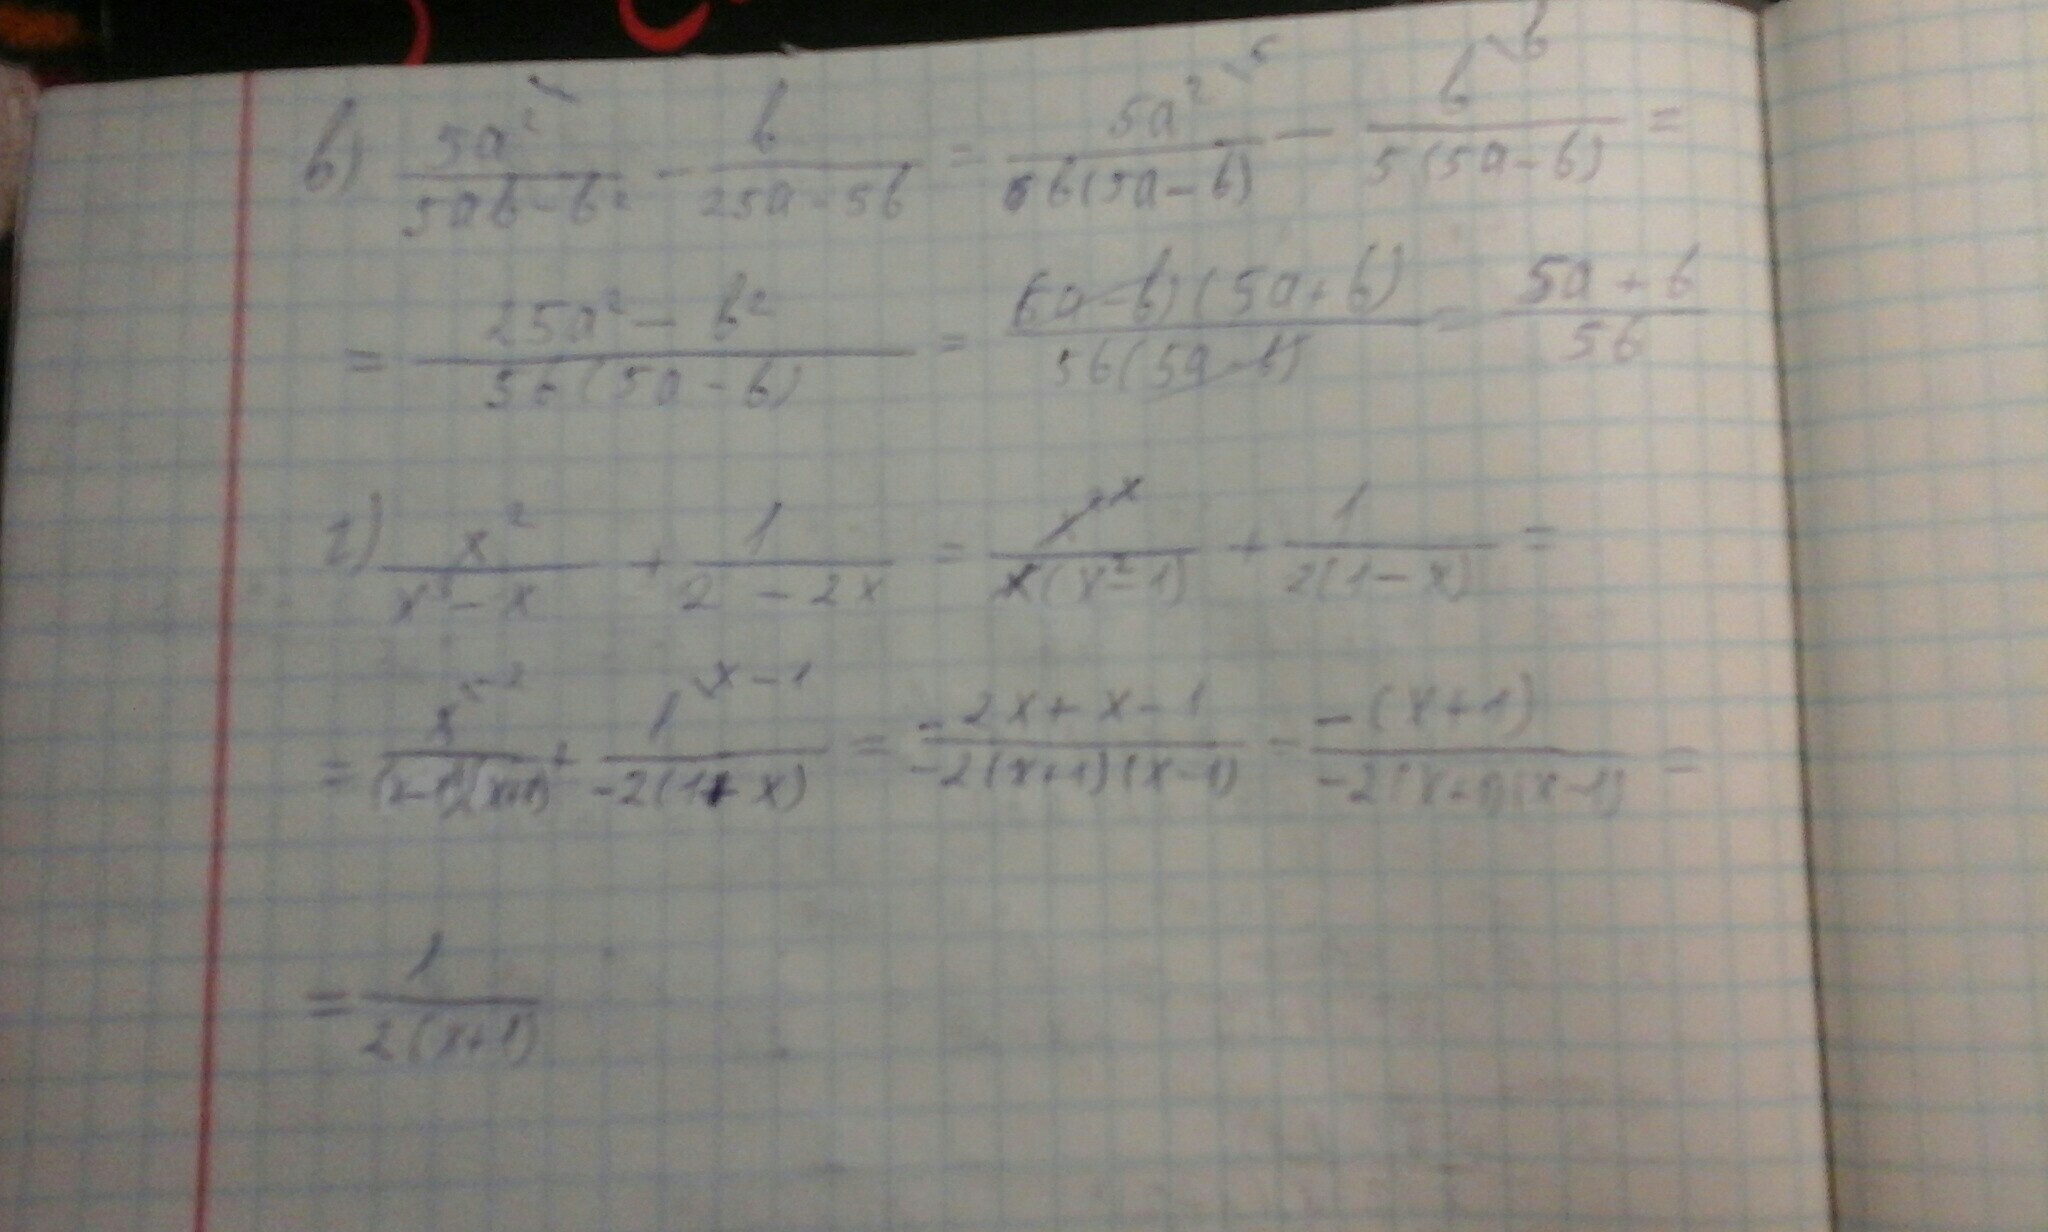 в) 5a²/(5ab-b²) - b/(25a-5b) = 5a²\5/(b(5a-b)) - b\b/(5(5a-b)) =
= (25a² - b²)/(5b(5a-b)) = (5a-b)(5a+b)/(5b(5a-b)) = (5a+b)/(5b)
г) x²/(x³-x) + 1/(2-2x) = x²/(x(x²-1)) + 1/(2(1-x)) =
= x\-2/((x-1)(x+1)) + 1\x-1/(-2(1+x)) = (-2x+x-1)/(-2(x+1)(x-1)) = -(x+1)/(-2(x+1)(x-1)) =
= 1/(2(x+1))